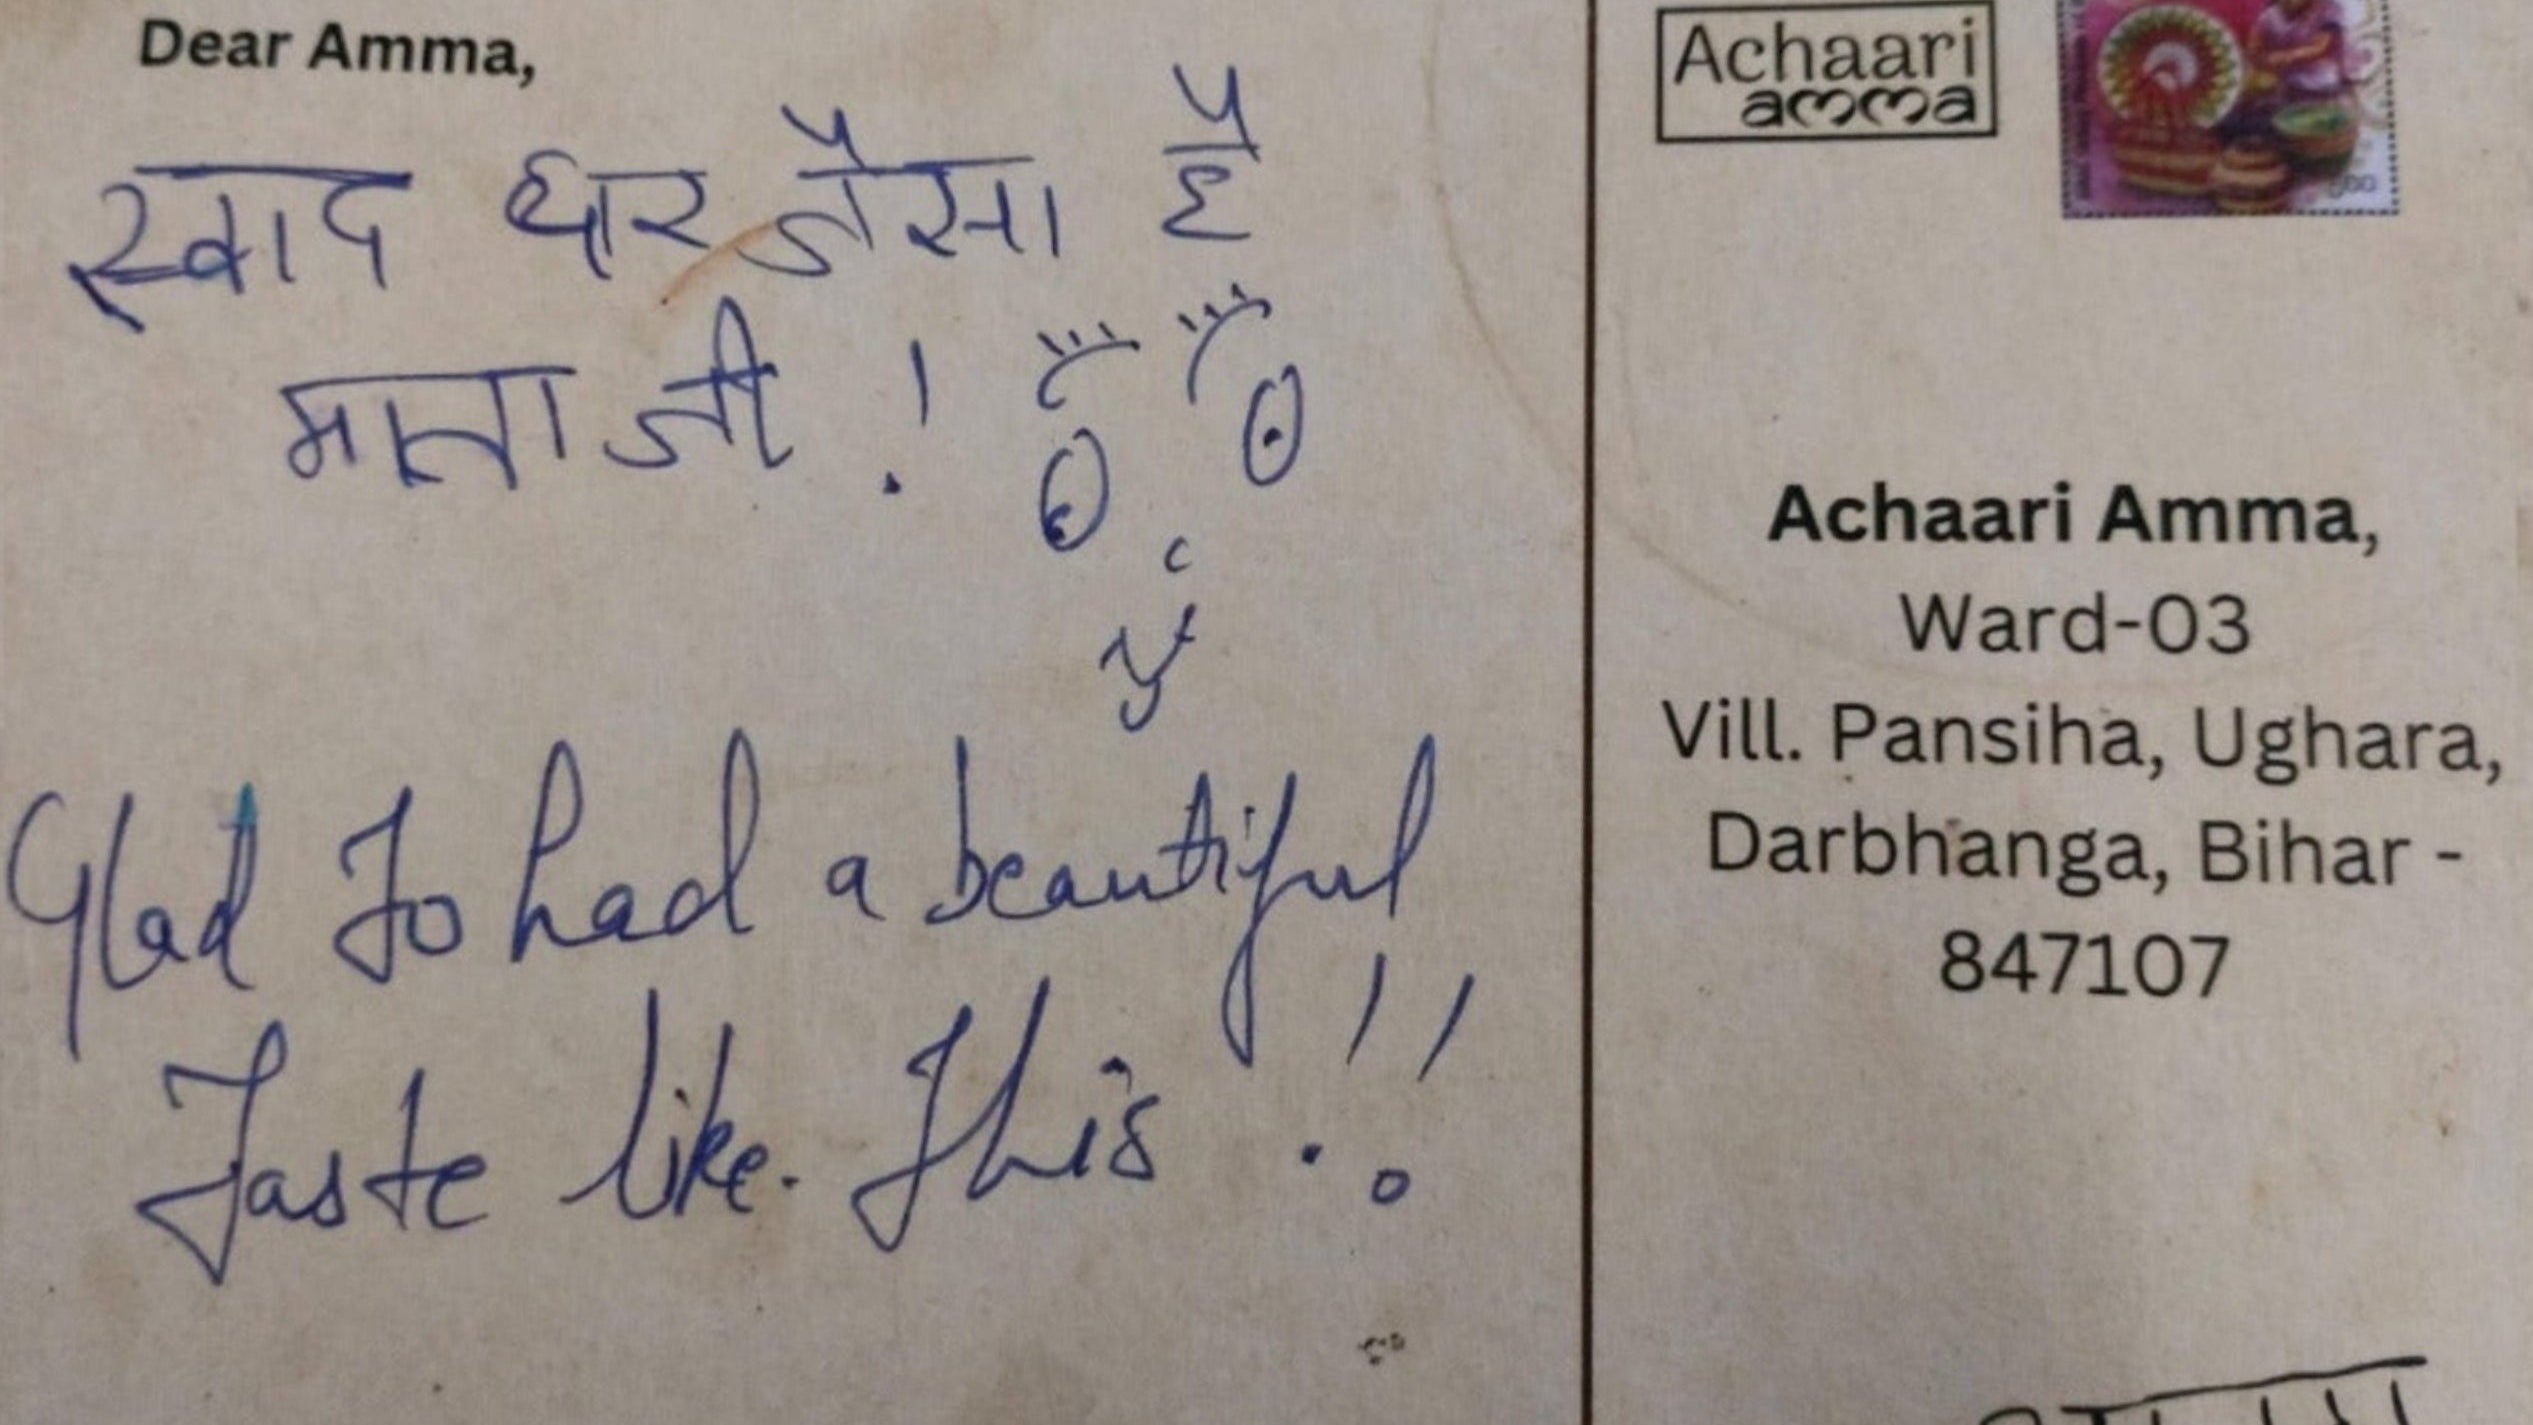 Dear Amma,
स्वाद घर जैसा है
माता जी !
Glad To had a beautiful
Taste like. This !!
Achaari
amma
Achaari Amma,
Ward-03
Vill. Pansiha, Ughara,
Darbhanga, Bihar -
847107